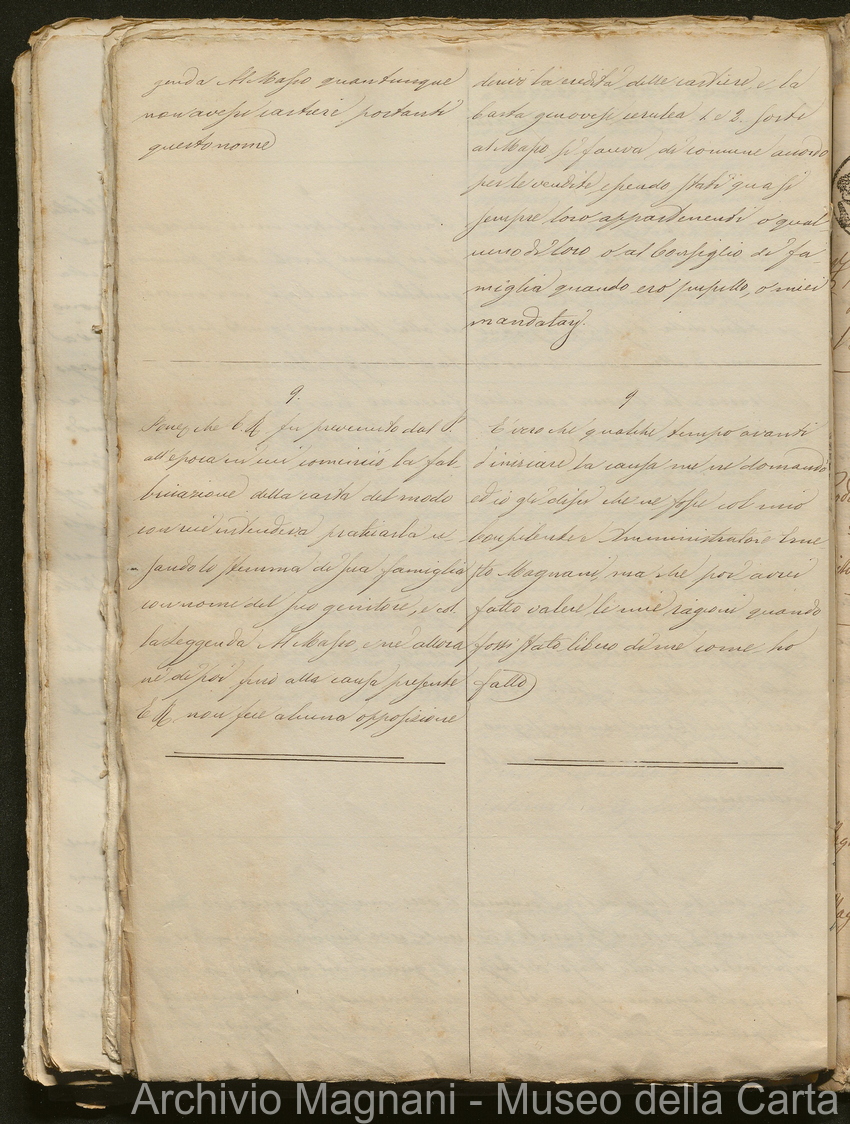 genda Al Masso quantunque
non avesse cartiere portanti
questo nome
divise la eredità delle cartiere, e la
carta genovese cerulea 1 e 2 sorte
al Masso, si faceva di comune accordo
per le vendite essendo stati quasi
sempre loro appartenenti o qual
uno di loro o al Consiglio di fa
miglia quando ero pupillo, o miei
mandatarj.
9.
che E. M. fu prevenuto dal S.
all'epoca in cui cominciò la fab
bricazione della carta del modo
con cui intendeva praticarla u
sando lo stemma di sua famiglia
con nome del suo genitore, e col
la leggenda Al Masso, e nè allora
nè di poi fino alla causa presente
E. M. non fece alcuna opposizione
9
È vero che qualche tempo avanti
d'iniziare la causa me ne domandò
ed io gli dissi che ne fosse col mio
Amministratore Erne
sto Magnani, ma che poi avrei
fatto valere le mie ragioni quando
fossi stato libero di me come ho
fatto
Archivio Magnani - Museo della Carta